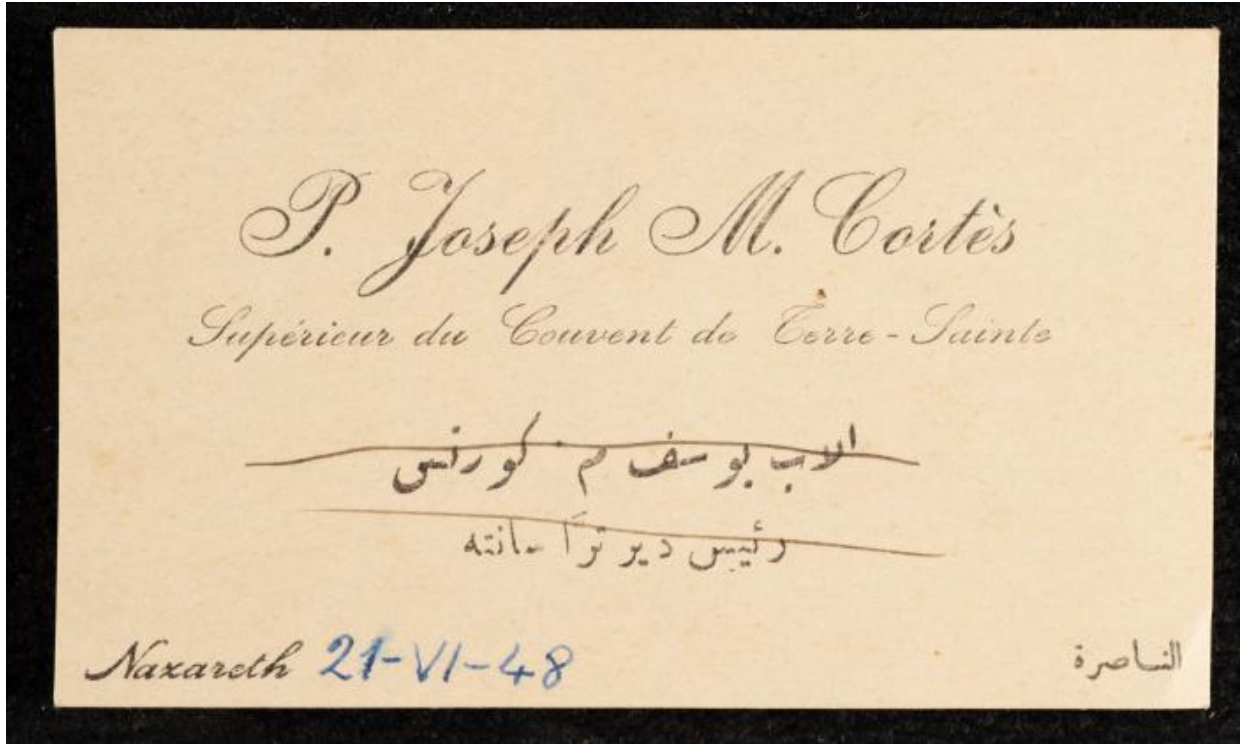 P. Joseph M. Cortès
Supérieur du Couvent de Terre-Sainte
الاب يوسف م. كورتس
رئيس دير ترّا سانته
Nazareth 21-VI-48
الناصرة